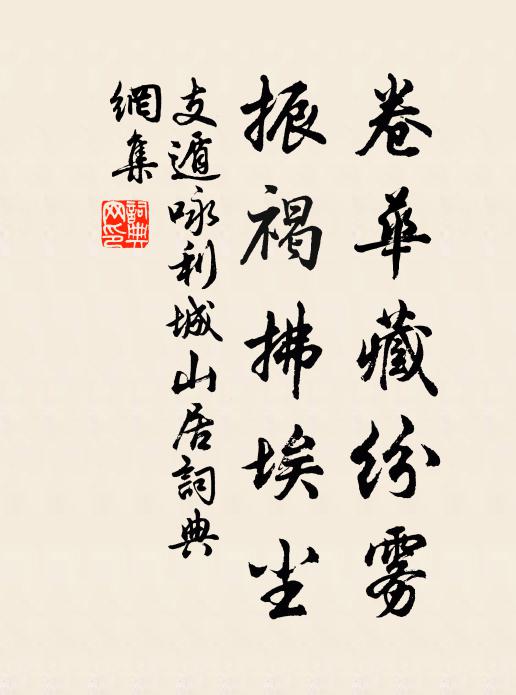 卷華藏紛雾
振褐拂埃尘
支遁咏利城山居詞典
網集
詞典網印